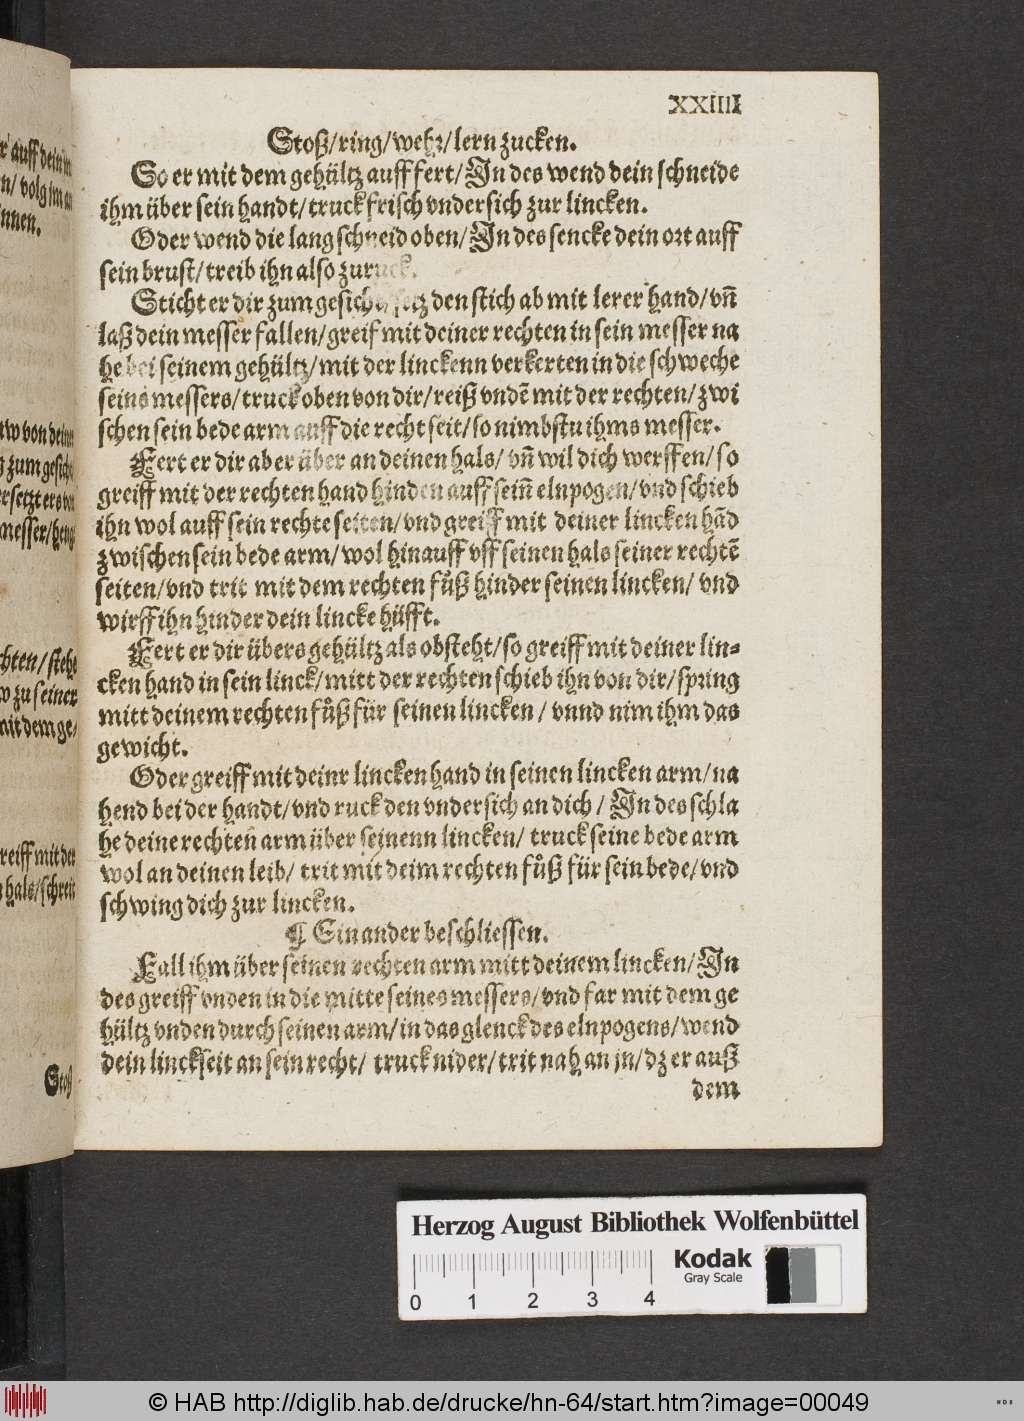 XXIIII
Stoß/ring/wehr/lern zucken.
So er mit dem gehültz auff fert/ In des wend dein schneide
ihm über sein handt/truck frisch vndersich zur lincken.
Oder wend die lang schneid oben/ In des sencke dein ort auff
sein brust/treib ihn also zuruck.
Sticht er dir zum gesicht/setz den stich ab mit lerer hand/vñ
laß dein messer fallen/greif mit deiner rechten in sein messer na
he bei seinem gehültz/mit der linckenn verkerten in die schweche
seins messers/truck oben von dir/reiß vndẽ mit der rechten/zwi
schen sein bede arm auff die recht seit/so nimbstu ihms messer.
Fert er dir aber über an deinen hals/ vñ wil dich werffen/so
greiff mit der rechten hand hinden auff seiñ elnpogen/vnd schieb
ihn wol auff sein rechte seiten/vnd greiff mit deiner lincken hãd
zwischen sein bede arm/wol hinauff vff seinen hals seiner rechtẽ
seiten/vnd trit mit dem rechten fůß hinder seinen lincken/ vnd
wirff ihn hinder dein lincke hüfft.
Fert er dir übers gehültz als obsteht/so greiff mit deiner lin=
cken hand in sein linck/mitt der rechten schieb ihn von dir/spring
mitt deinem rechten fůß für seinen lincken / vnnd nim ihm das
gewicht.
Oder greiff mit deinr lincken hand in seinen lincken arm/na
hend bei der handt/vnd ruck den vndersich an dich / In des schla
he deine rechteñ arm über seinenn lincken/ truck seine bede arm
wol an deinen leib/ trit mit deim rechten fůß für sein bede/vnd
schwing dich zur lincken.
¶ Einander beschliessen.
Fall ihm über seinen rechten arm mitt deinem lincken/In
des greiff vnden in die mitte seines messers/vnd far mit dem ge
hültz vnden durch seinen arm/in das glenck des elnpogens/wend
dein linckseit an sein recht/ truck nider/trit nah an jn/dz er auß
dem
r auff dein
n/ volg jm an
innen.
von deine
zum gesicht
ersetzt ers
messer/heng
chten/stehe
zu seiner
mit dem ge/
reiff mit der
hals/schreit
Stoß
Herzog August Bibliothek Wolfenbüttel
Kodak
Gray Scale
0 1 2 3 4
© HAB http://diglib.hab.de/drucke/hn-64/start.htm?image=00049